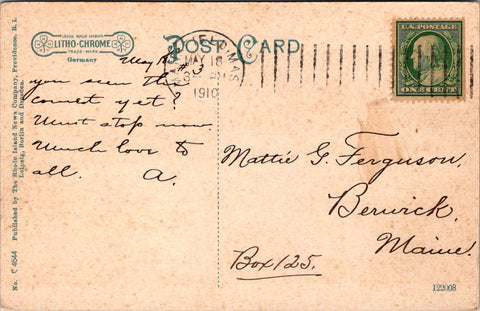 LITHO-CHROME
TRADE-MARK
Germany
POST CARD.
MASS
MAY 18
1910
U.S. POSTAGE
ONE CENT
May 18
you seen the
comet yet?
Must stop now.
Much love to
all. A.
Mattie G. Ferguson,
Berwick,
Maine.
Box 125.
No. 4644 Published by The Rhode Island News Company, Providence, R. I.
Leipzig, Berlin and Dresden.
122008